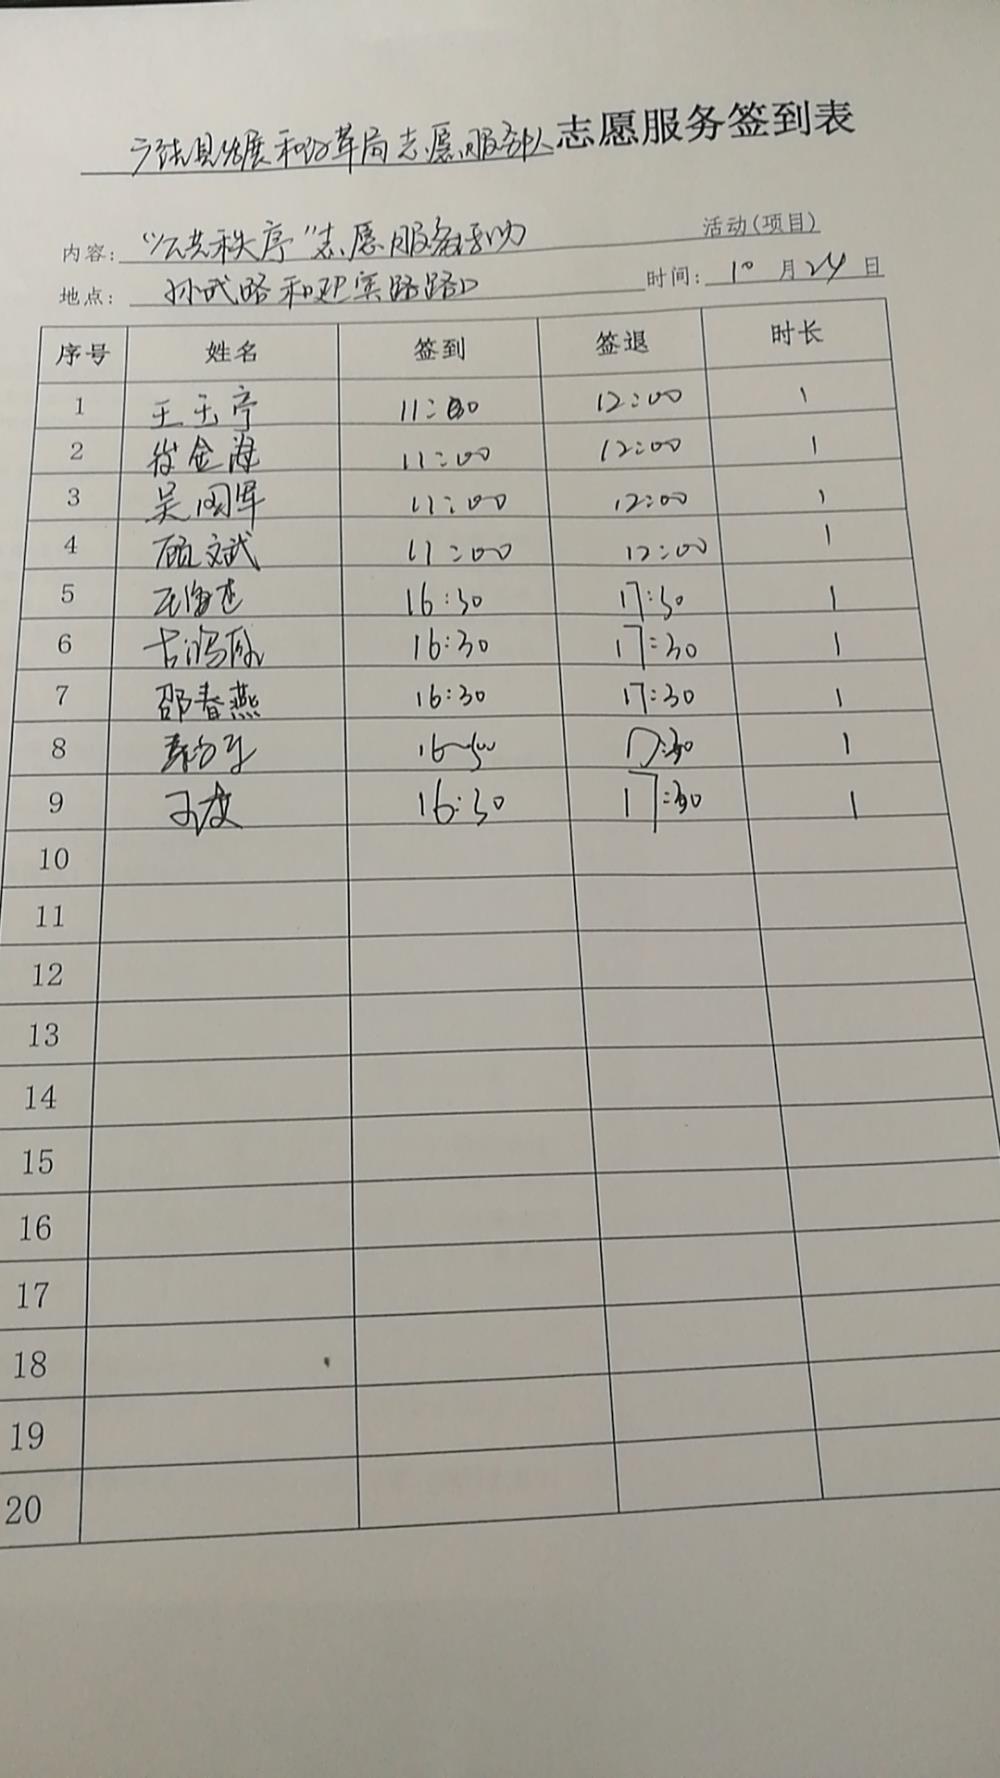 广饶县发展和改革局志愿服务队志愿服务签到表
内容: "公共秩序"志愿服务活动 活动(项目)
地点: 孙武路和迎宾路路口 时间: 10月24日
序号 姓名 签到 签退 时长
1 王玉亭 11:00 12:00 1
2 徐金海 11:00 12:00 1
3 吴国军 11:00 12:00 1
4 顾文武 11:00 12:00 1
5 16:30 17:30 1
6 16:30 17:30 1
7 邵春燕 16:30 17:30 1
8 17:30 1
9 16:30 17:30 1
10
11
12
13
14
15
16
17
18
19
20